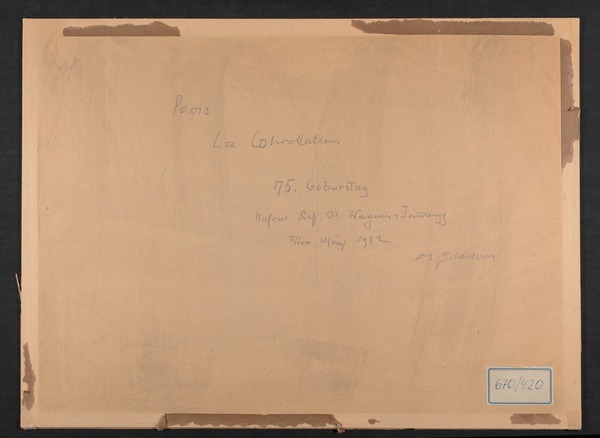 Paris
La Constellation
75. Geburtstag
Hofrat Prof. Dr. Wagner-Jauregg
Wien März 1932
670/420